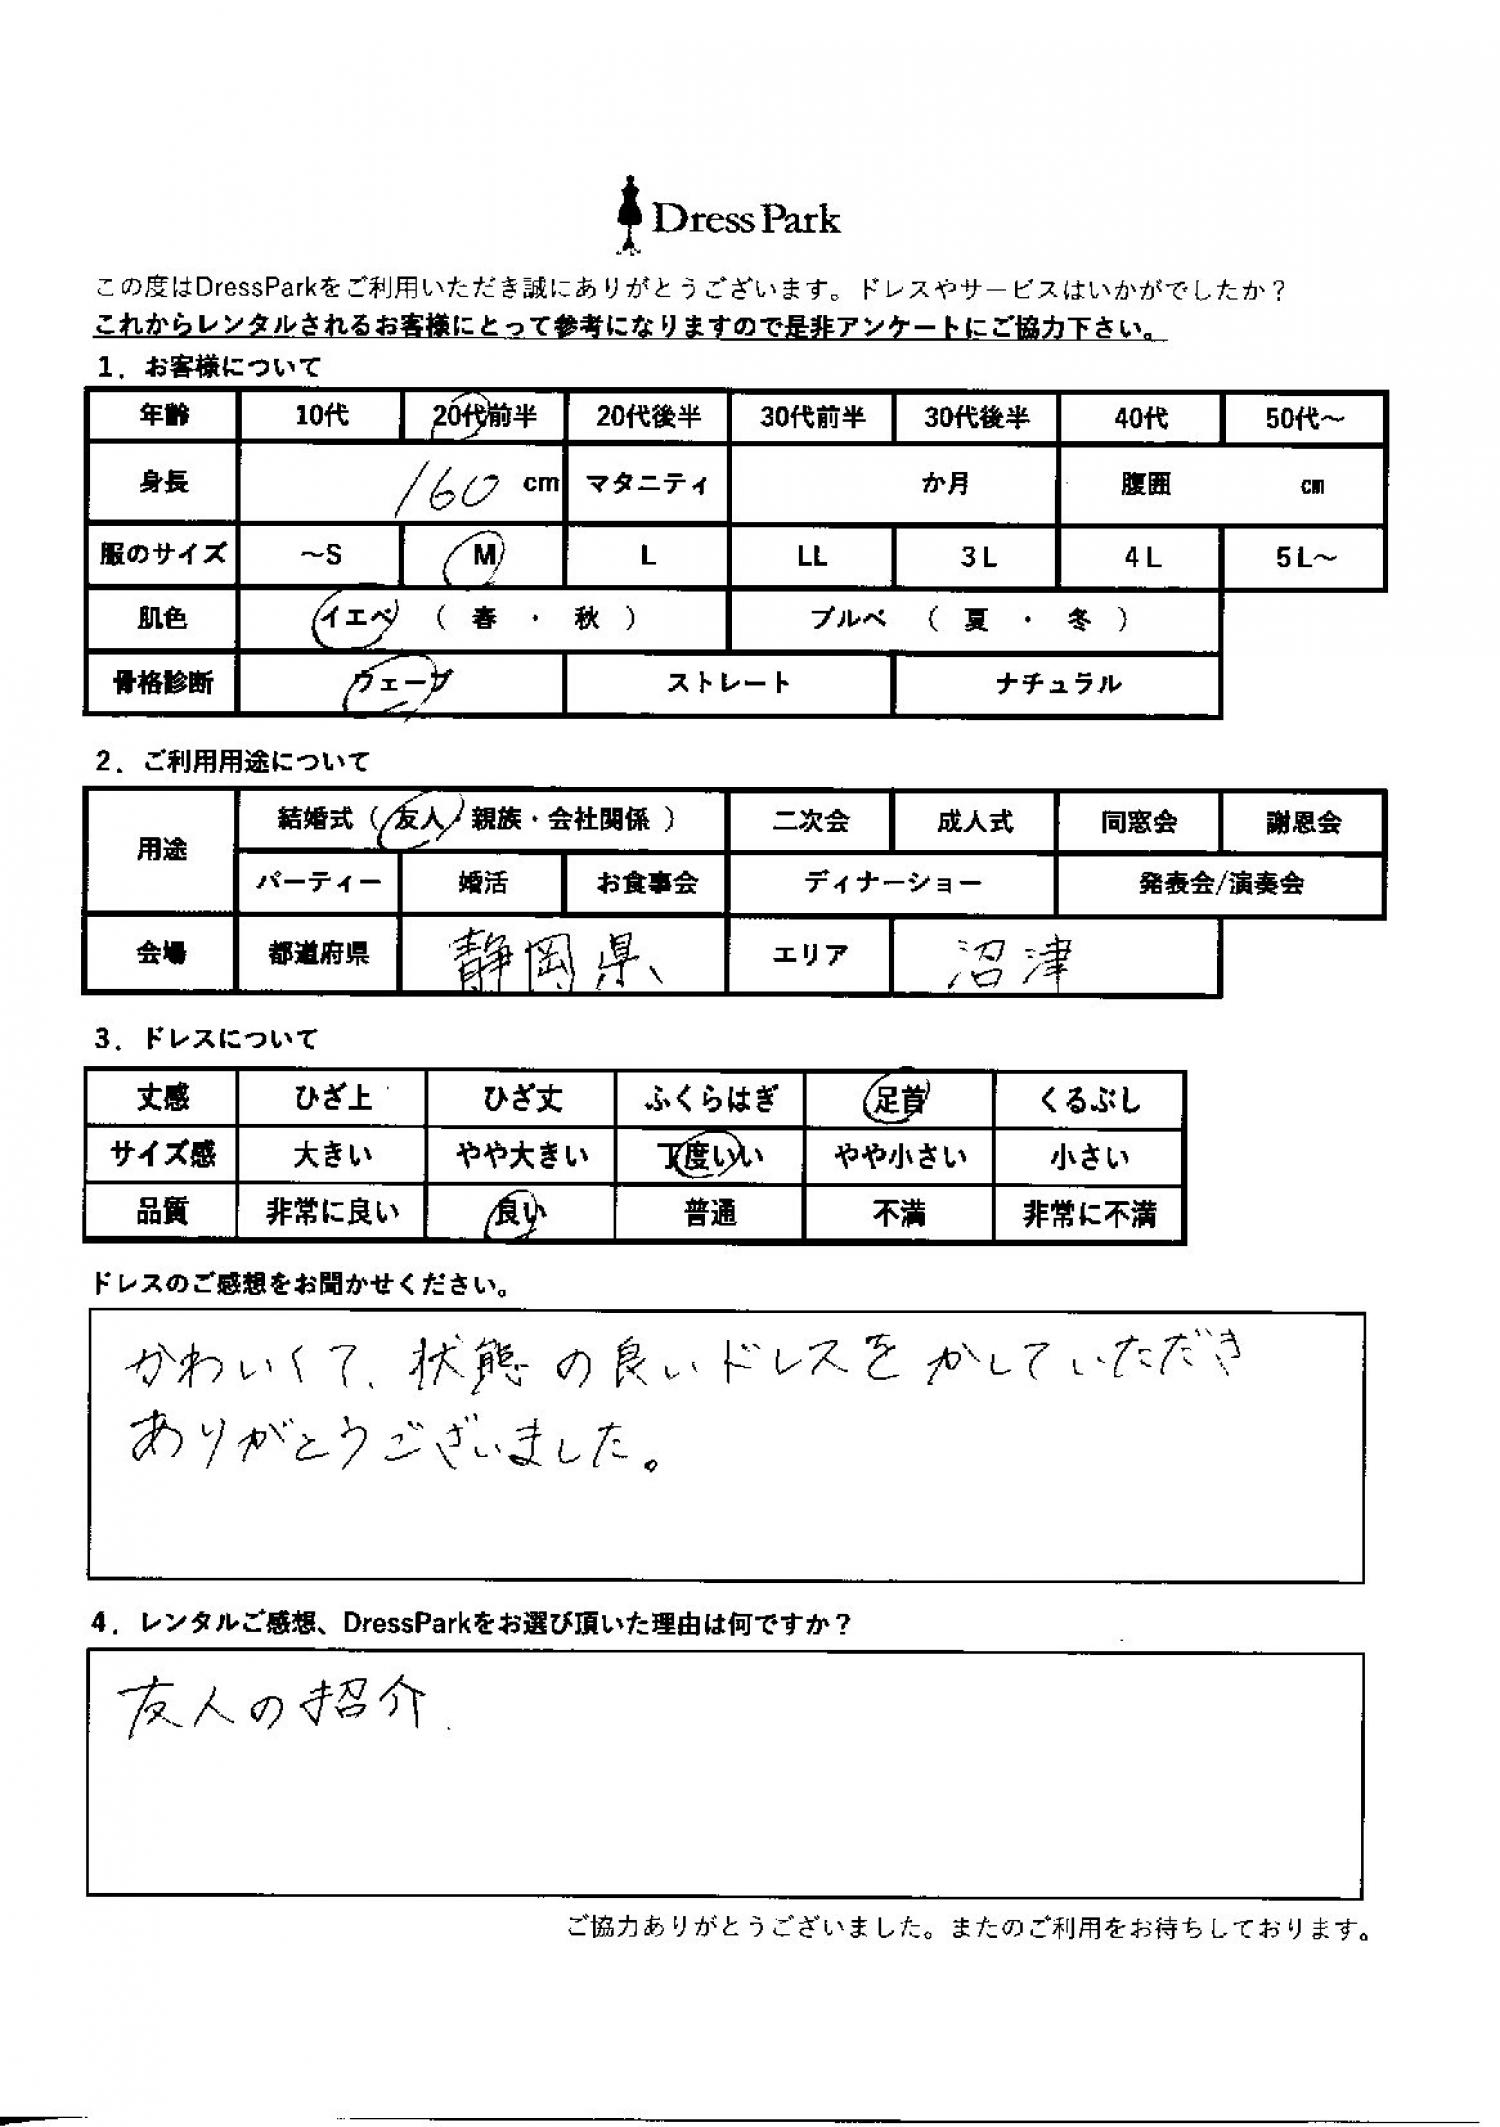 Dress Park
この度はDressParkをご利用いただき誠にありがとうございます。ドレスやサービスはいかがでしたか？
これからレンタルされるお客様にとって参考になりますので是非アンケートにご協力下さい。
1．お客様について
年齢 10代 20代前半 20代後半 30代前半 30代後半 40代 50代～
身長 160 cm マタニティ か月 腹囲 cm
服のサイズ ～S M L LL 3L 4L 5L～
肌色 イエベ （ 春 ・ 秋 ） ブルベ （ 夏 ・ 冬 ）
骨格診断 ウェーブ ストレート ナチュラル
2．ご利用用途について
用途 結婚式（ 友人・親族・会社関係 ） 二次会 成人式 同窓会 謝恩会
パーティー 婚活 お食事会 ディナーショー 発表会/演奏会
会場 都道府県 静岡県 エリア 沼津
3．ドレスについて
丈感 ひざ上 ひざ丈 ふくらはぎ 足首 くるぶし
サイズ感 大きい やや大きい 丁度いい やや小さい 小さい
品質 非常に良い 良い 普通 不満 非常に不満
ドレスのご感想をお聞かせください。
かわいくて、状態の良いドレスをかしていただき
ありがとうございました。
4．レンタルご感想、DressParkをお選び頂いた理由は何ですか？
友人の紹介
ご協力ありがとうございました。またのご利用をお待ちしております。